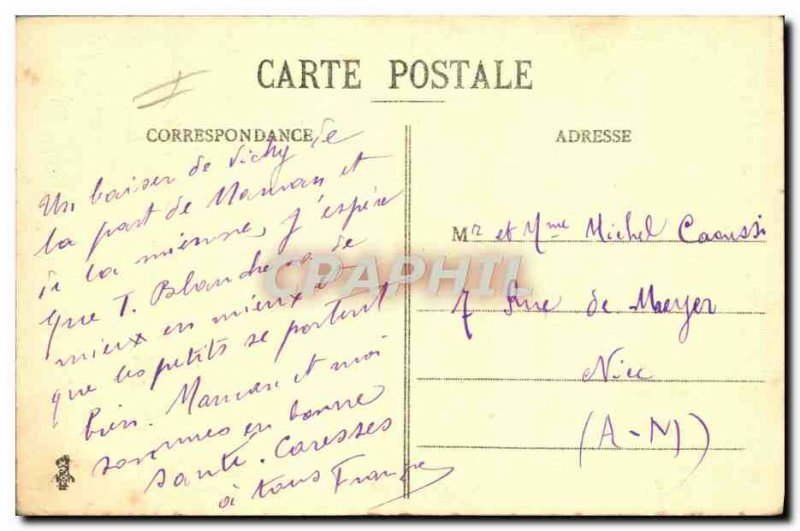 CARTE POSTALE
CORRESPONDANCE
Un baiser de Vichy de
la part de Maman et
de la mienne, j'espère
que T. Blanche va de
mieux en mieux et
que les petits se portent
bien. Maman et moi
sommes en bonne
santé. Caresses
à tous
ADRESSE
Mr et Mme Michel Caoussi
7 Rue de Meyer
Nice
(A-M)
CPAPHIL